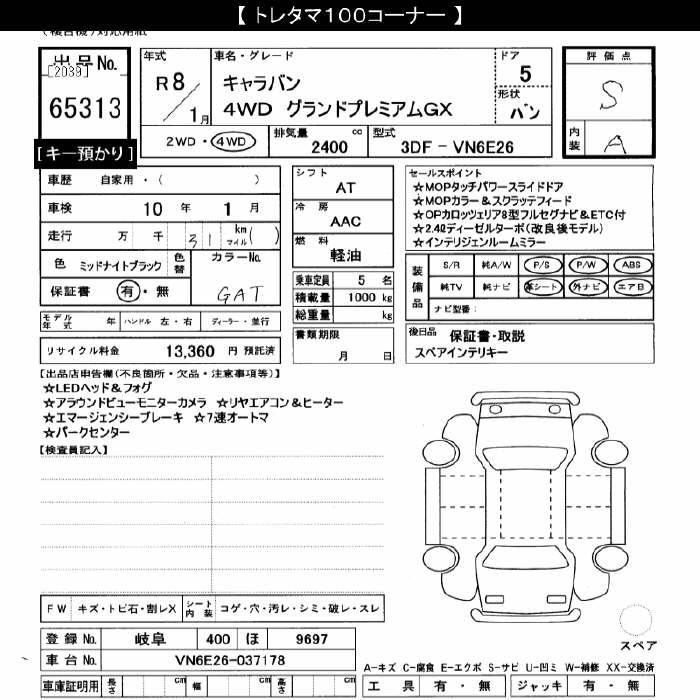 【 トレタマ１００コーナー 】
出品No.
[2039]
65313
[キー預かり]
年式
R8／1月
車名・グレード
キャラバン
4WD グランドプレミアムGX
ドア
5
形状
バン
2WD・4WD
排気量
2400 cc
型式
3DF－VN6E26
評価点
S
内装
A
車歴 自家用・( )
車検 10年 1月
走行 万 千 31 km マイル ( )
色 ミッドナイトブラック 色替
カラーNo.
GAT
保証書 有・無
モデル年式 年 ハンドル 左・右 ディーラー・並行
リサイクル料金 13,360 円 預託済
シフト
AT
冷房
AAC
燃料
軽油
乗車定員 5 名
積載量 1000 kg
総重量 kg
書類期限
月 日
セールスポイント
☆MOPタッチパワースライドドア
☆MOPカラー＆スクラッチフィード
☆OPカロッツェリア8型フルセグナビ＆ETC付
☆2.4ℓディーゼルターボ（改良後モデル）
☆インテリジェンルームミラー
装備品
S/R 純A/W P/S P/W ABS
純TV 純ナビ 革シート 外ナビ エアB
ナビ型番：
後日品 保証書・取説
スペアインテリキー
【出品店申告欄(不良箇所・欠品・注意事項等)】
☆LEDヘッド＆フォグ
☆アラウンドビューモニターカメラ ☆リヤエアコン＆ヒーター
☆エマージェンシーブレーキ ☆7速オートマ
☆パークセンター
【検査員記入】
FW キズ・トビ石・割レX
シート内装 コゲ・穴・汚レ・シミ・破レ・スレ
登録No. 岐阜 400 ほ 9697
車台No. VN6E26-037178
車庫証明用 長さ cm 幅 cm 高さ cm
スペア
A-キズ C-腐食 E-エクボ S-サビ U-凹ミ W-補修 XX-交換済
工具 有・無 ジャッキ 有・無